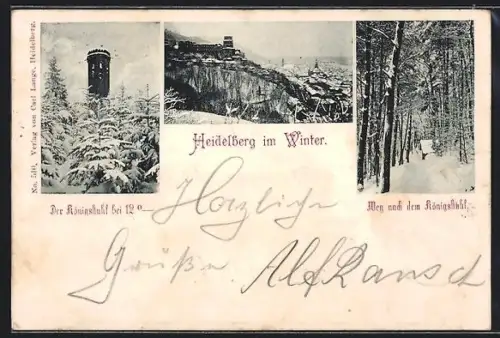 No. 510, Verlag von Carl Lange, Heidelberg.
Heidelberg im Winter.
Der Königstuhl bei 12 °
Weg nach dem Königstuhl.
Herzliche
Grüße. Alf